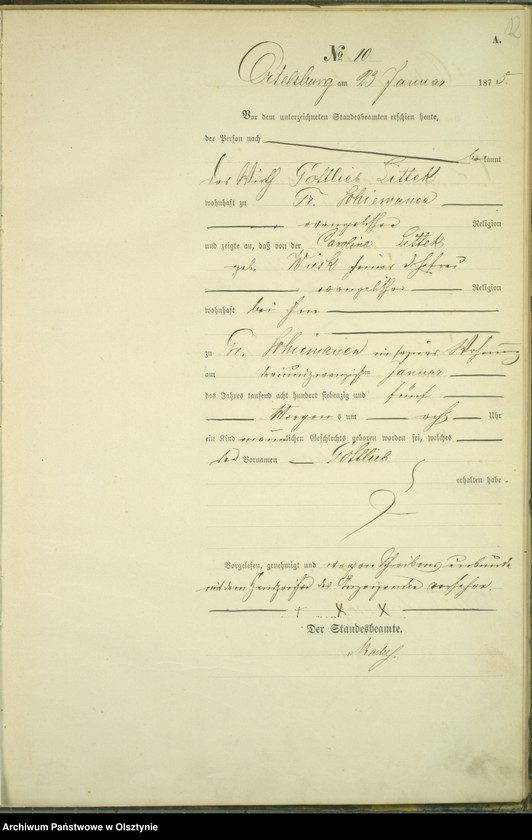 12
A.
№ 10
Ortelsburg am 23 Januar 1875.
Vor dem unterzeichneten Standesbeamten erschien heute,
der Person nach bekannt
der Wirth Gottlieb Littek
wohnhaft zu Gr. Schiemanen
evangelischer Religion
und zeigte an, daß von der Caroline Littek
geb. Wiesk seiner Ehefrau
evangelischer Religion
wohnhaft bei ihm
zu Gr. Schiemanen in seiner Wohnung
am dreiundzwanzigsten Januar
des Jahres tausend acht hundert siebenzig und fünf
Morgens um acht Uhr
ein Kind männlichen Geschlechts geboren worden sei, welches
den Vornamen Gottlieb
erhalten habe.
Vorgelesen, genehmigt und wegen Schreibensunkunde
mit dem Handzeichen des Anzeigenden versehen.
+ X X
Der Standesbeamte.
Archiwum Państwowe w Olsztynie